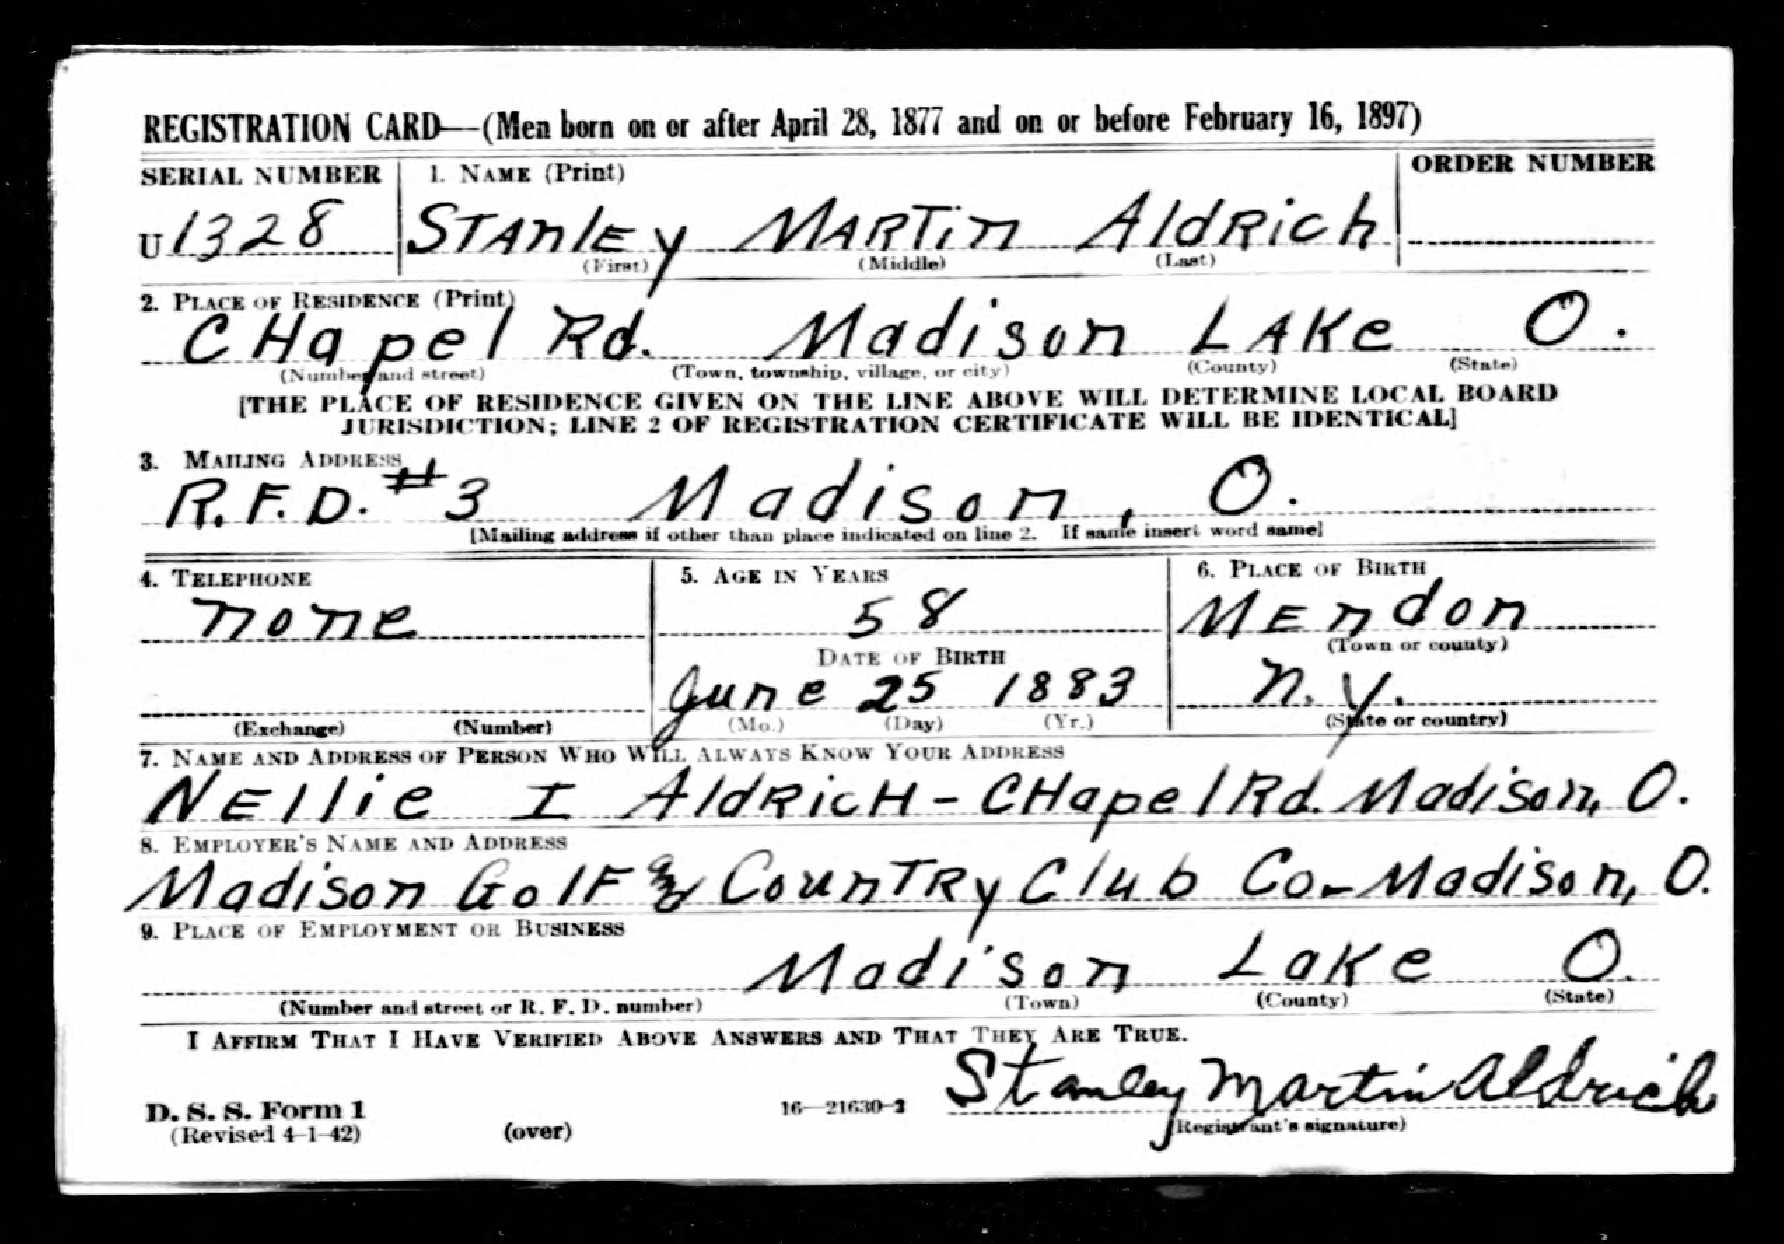 REGISTRATION CARD—(Men born on or after April 28, 1877 and on or before February 16, 1897)
SERIAL NUMBER 1. NAME (Print) ORDER NUMBER
U 1328 STANlEy MARTin AldRich
(First) (Middle) (Last)
2. PLACE OF RESIDENCE (Print)
CHapel Rd. Madison LAKe O.
(Number and street) (Town, township, village, or city) (County) (State)
[THE PLACE OF RESIDENCE GIVEN ON THE LINE ABOVE WILL DETERMINE LOCAL BOARD
JURISDICTION; LINE 2 OF REGISTRATION CERTIFICATE WILL BE IDENTICAL]
3. MAILING ADDRESS
R.F.D. #3 Madison, O.
[Mailing address if other than place indicated on line 2. If same insert word same]
4. TELEPHONE 5. AGE IN YEARS 6. PLACE OF BIRTH
none 58 MEndon
DATE OF BIRTH (Town or county)
June 25 1883 N.y.
(Exchange) (Number) (Mo.) (Day) (Yr.) (State or country)
7. NAME AND ADDRESS OF PERSON WHO WILL ALWAYS KNOW YOUR ADDRESS
NEllie I AldRicH - CHapel Rd. Madison, O.
8. EMPLOYER'S NAME AND ADDRESS
Madison GolF & CounTRy Club Co- Madison, O.
9. PLACE OF EMPLOYMENT OR BUSINESS
Madison LaKe O.
(Number and street or R. F. D. number) (Town) (County) (State)
I AFFIRM THAT I HAVE VERIFIED ABOVE ANSWERS AND THAT THEY ARE TRUE.
Stanley Martin Aldrich
D. S. S. Form 1 16—21630-2
(Revised 4-1-42) (over) (Registrant's signature)